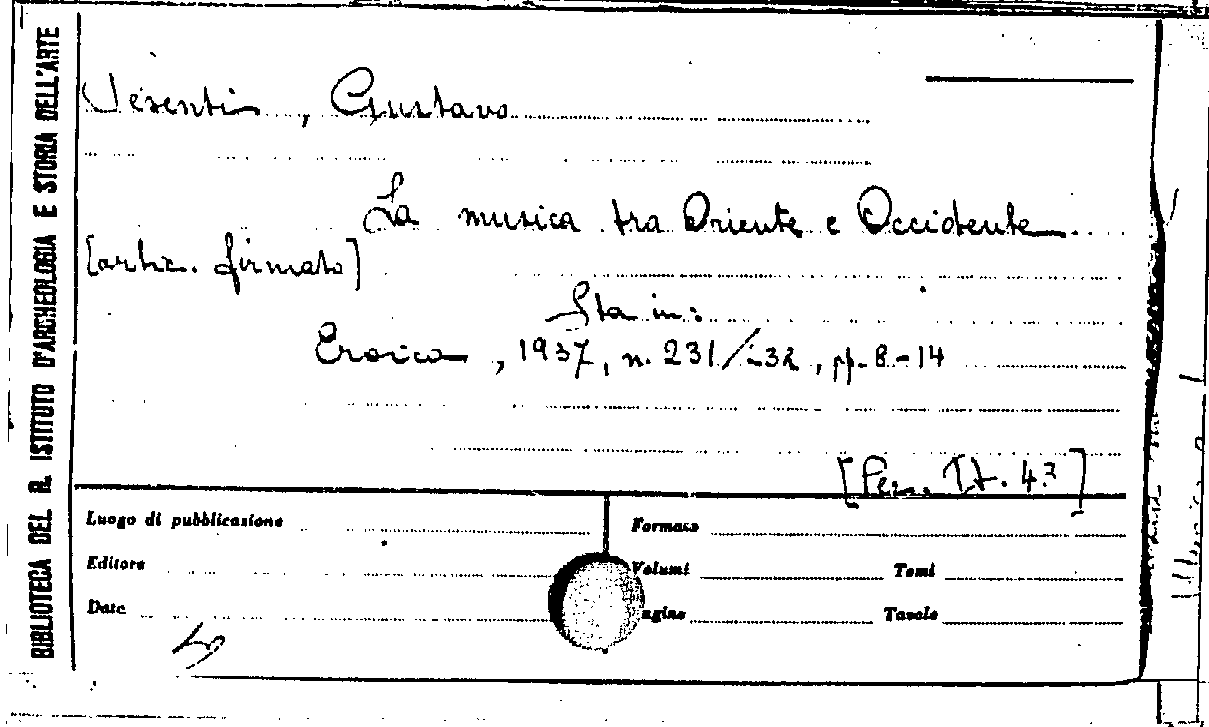 BIBLIOTECA DEL R. ISTITUTO D'ARCHEOLOGIA E STORIA DELL'ARTE
Vesentini, Gustavo
La musica tra Oriente e Occidente
[artic. firmato]
Sta in:
Eroica, 1937, n. 231/232, pp. 8-14
[Per. It. 43]
Luogo di pubblicazione
Formato
Editore
Volumi
Tomi
Date
Tavole